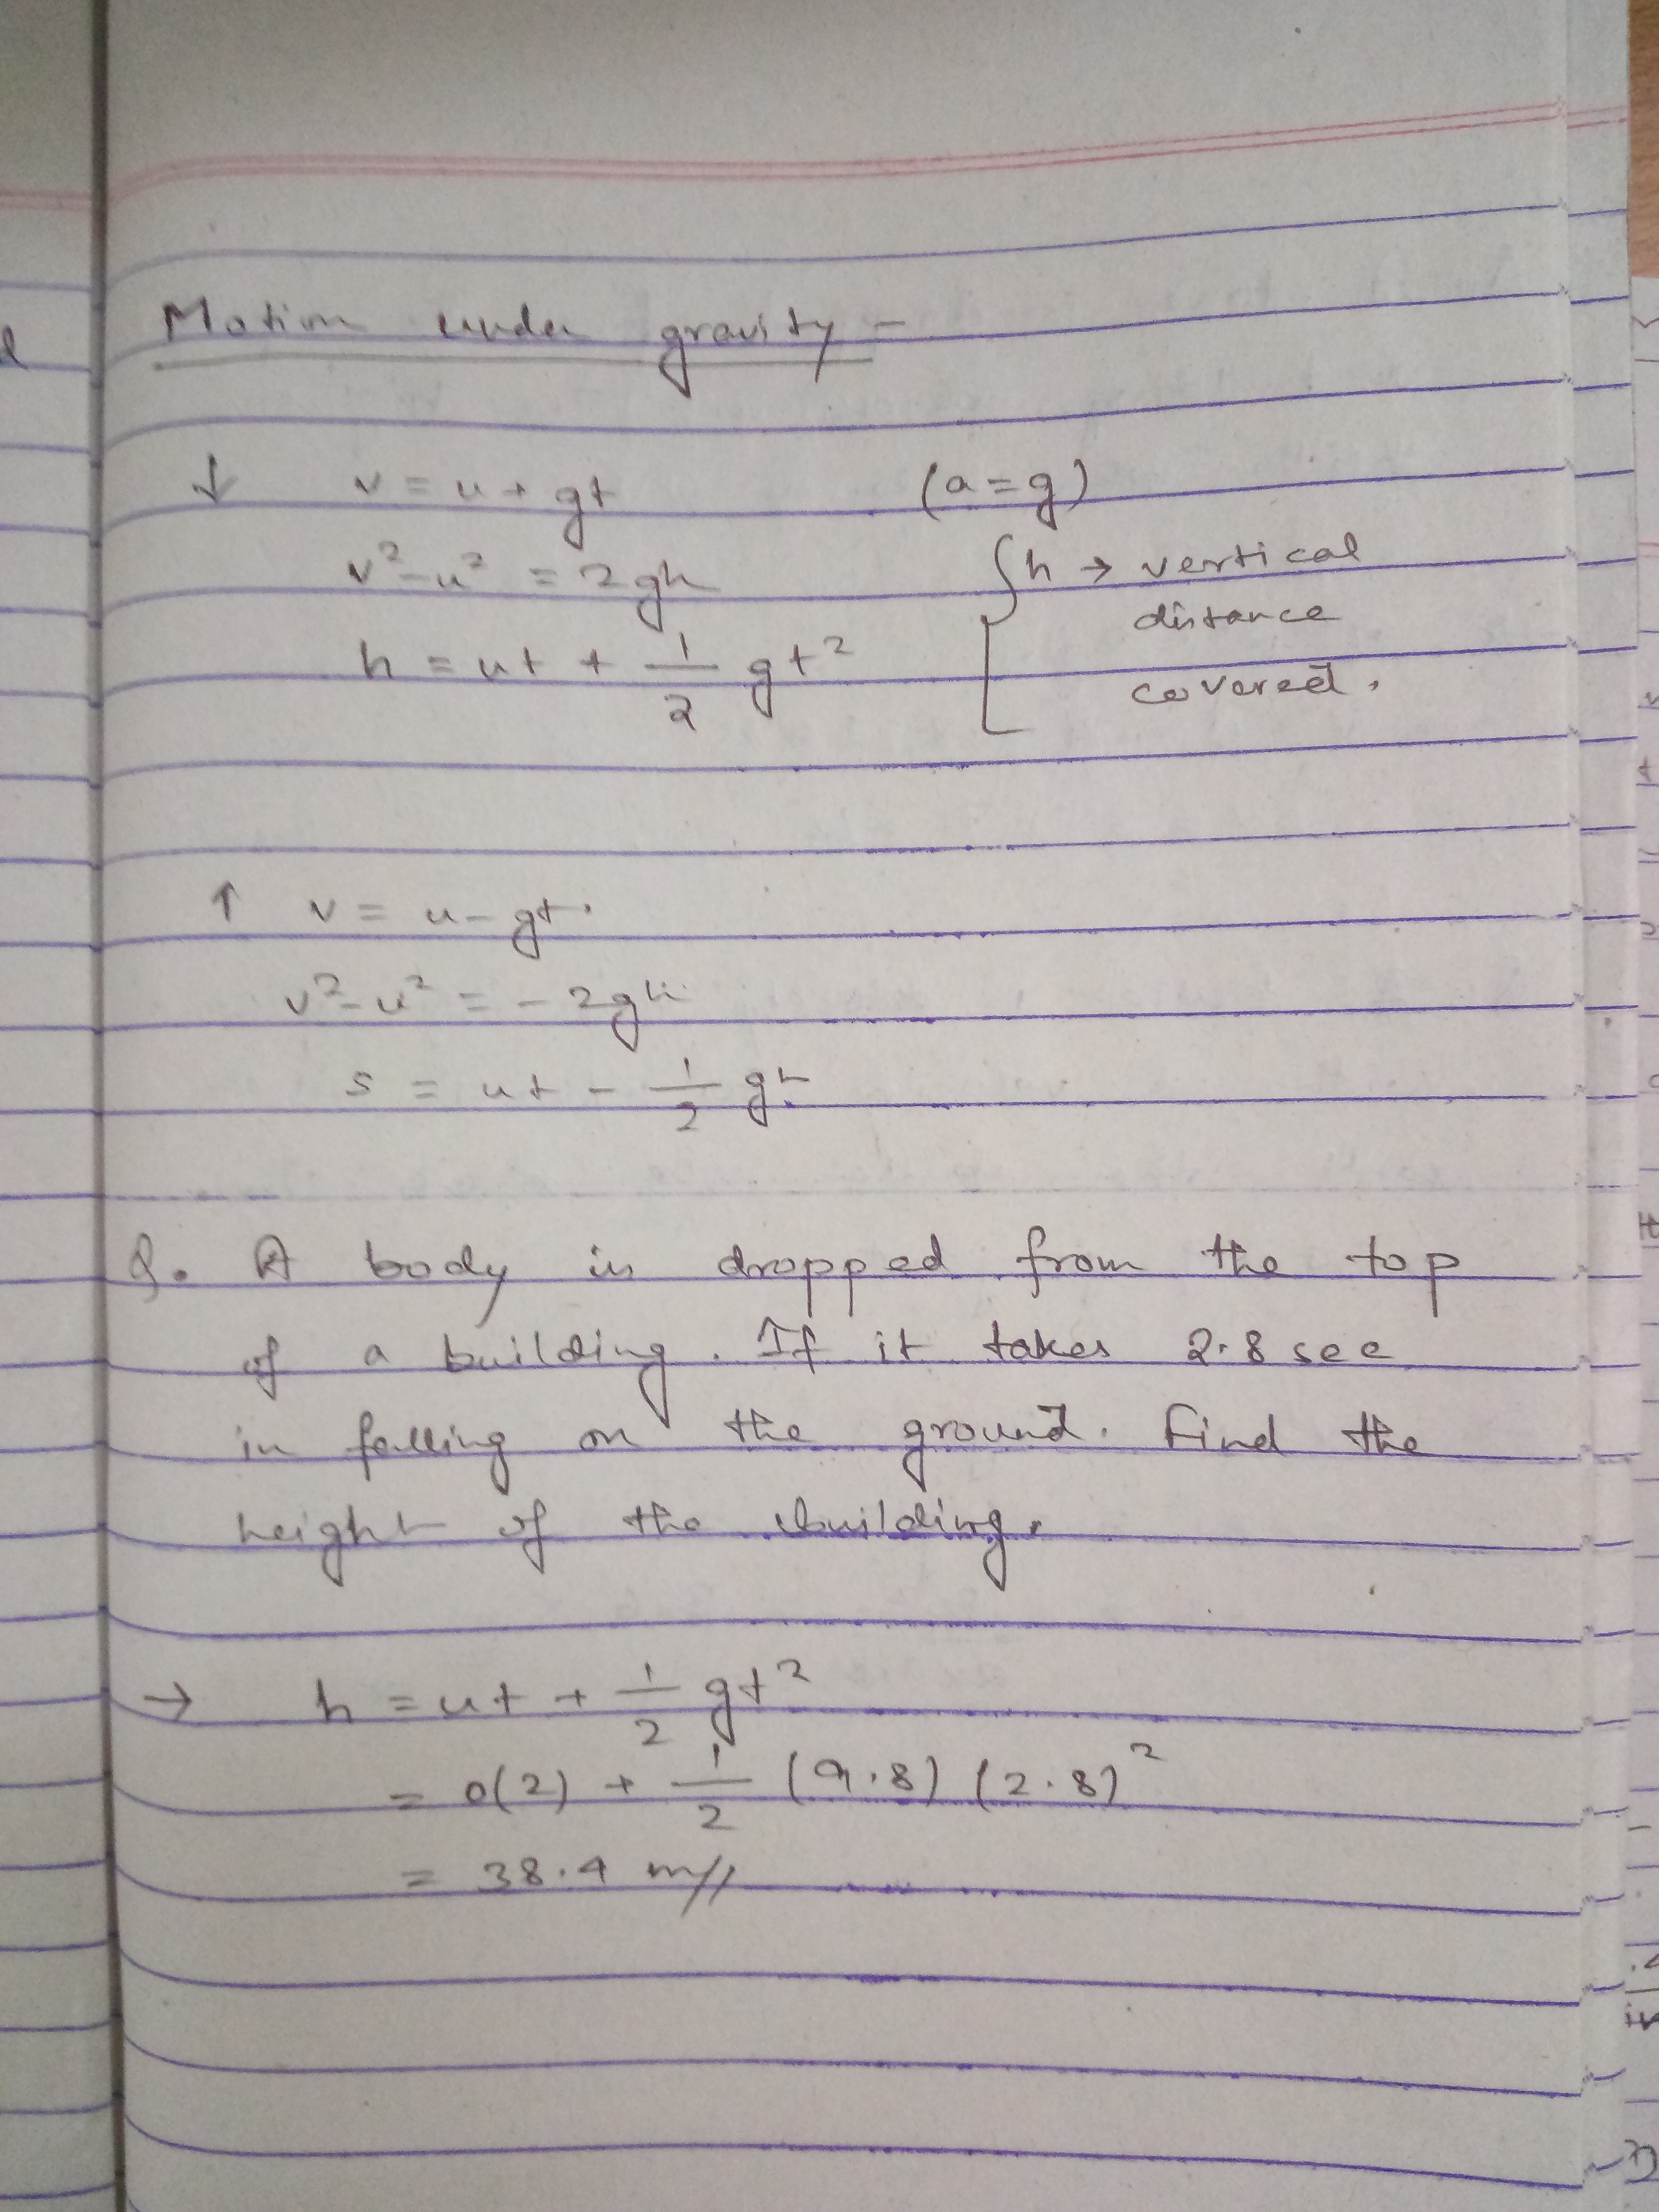 Motion under gravity -
↓ v = u + gt (a = g)
v² - u² = 2gh {h → vertical
distance
h = ut + 1/2 gt²
covered.
↑ v = u - gt.
v² - u² = - 2gh
s = ut - 1/2 gh
Q. A body is dropped from the top
of a building. If it takes 2.8 sec
in falling on the ground. Find the
height of the building.
→ h = ut + 1/2 gt²
= 0(2) + 1/2 (9.8) (2.8)²
= 38.4 m//